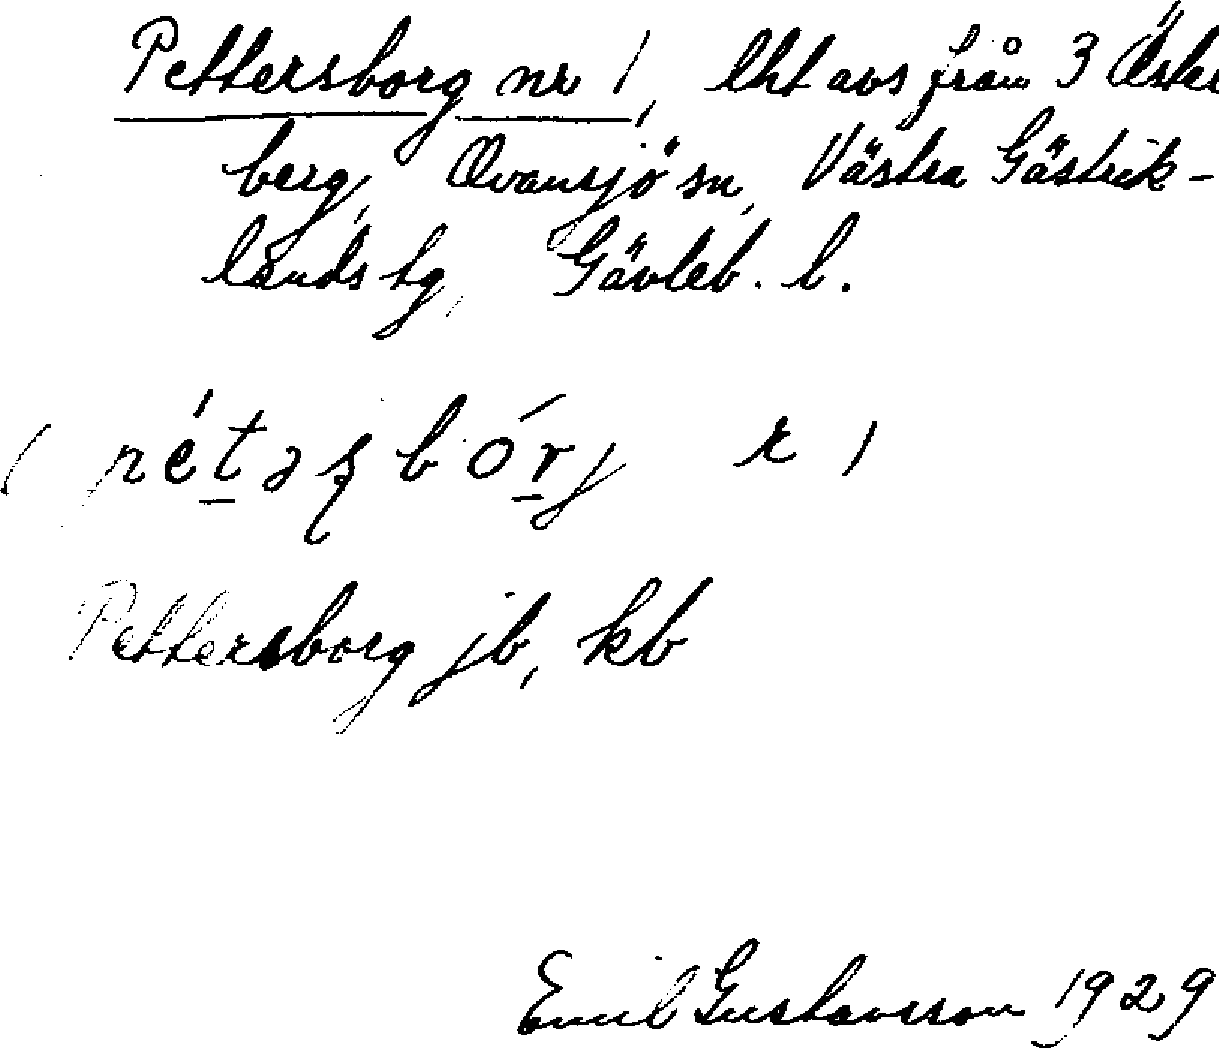 Pettersborg nr 1, lht avs från 3 Öster
berg, Ovansjö sn, Västra Gästrik-
lands tg, Gävleb. l.
( pétəʂbórj r )
Pettersborg jb, kb
Emil Gustavsson 1929